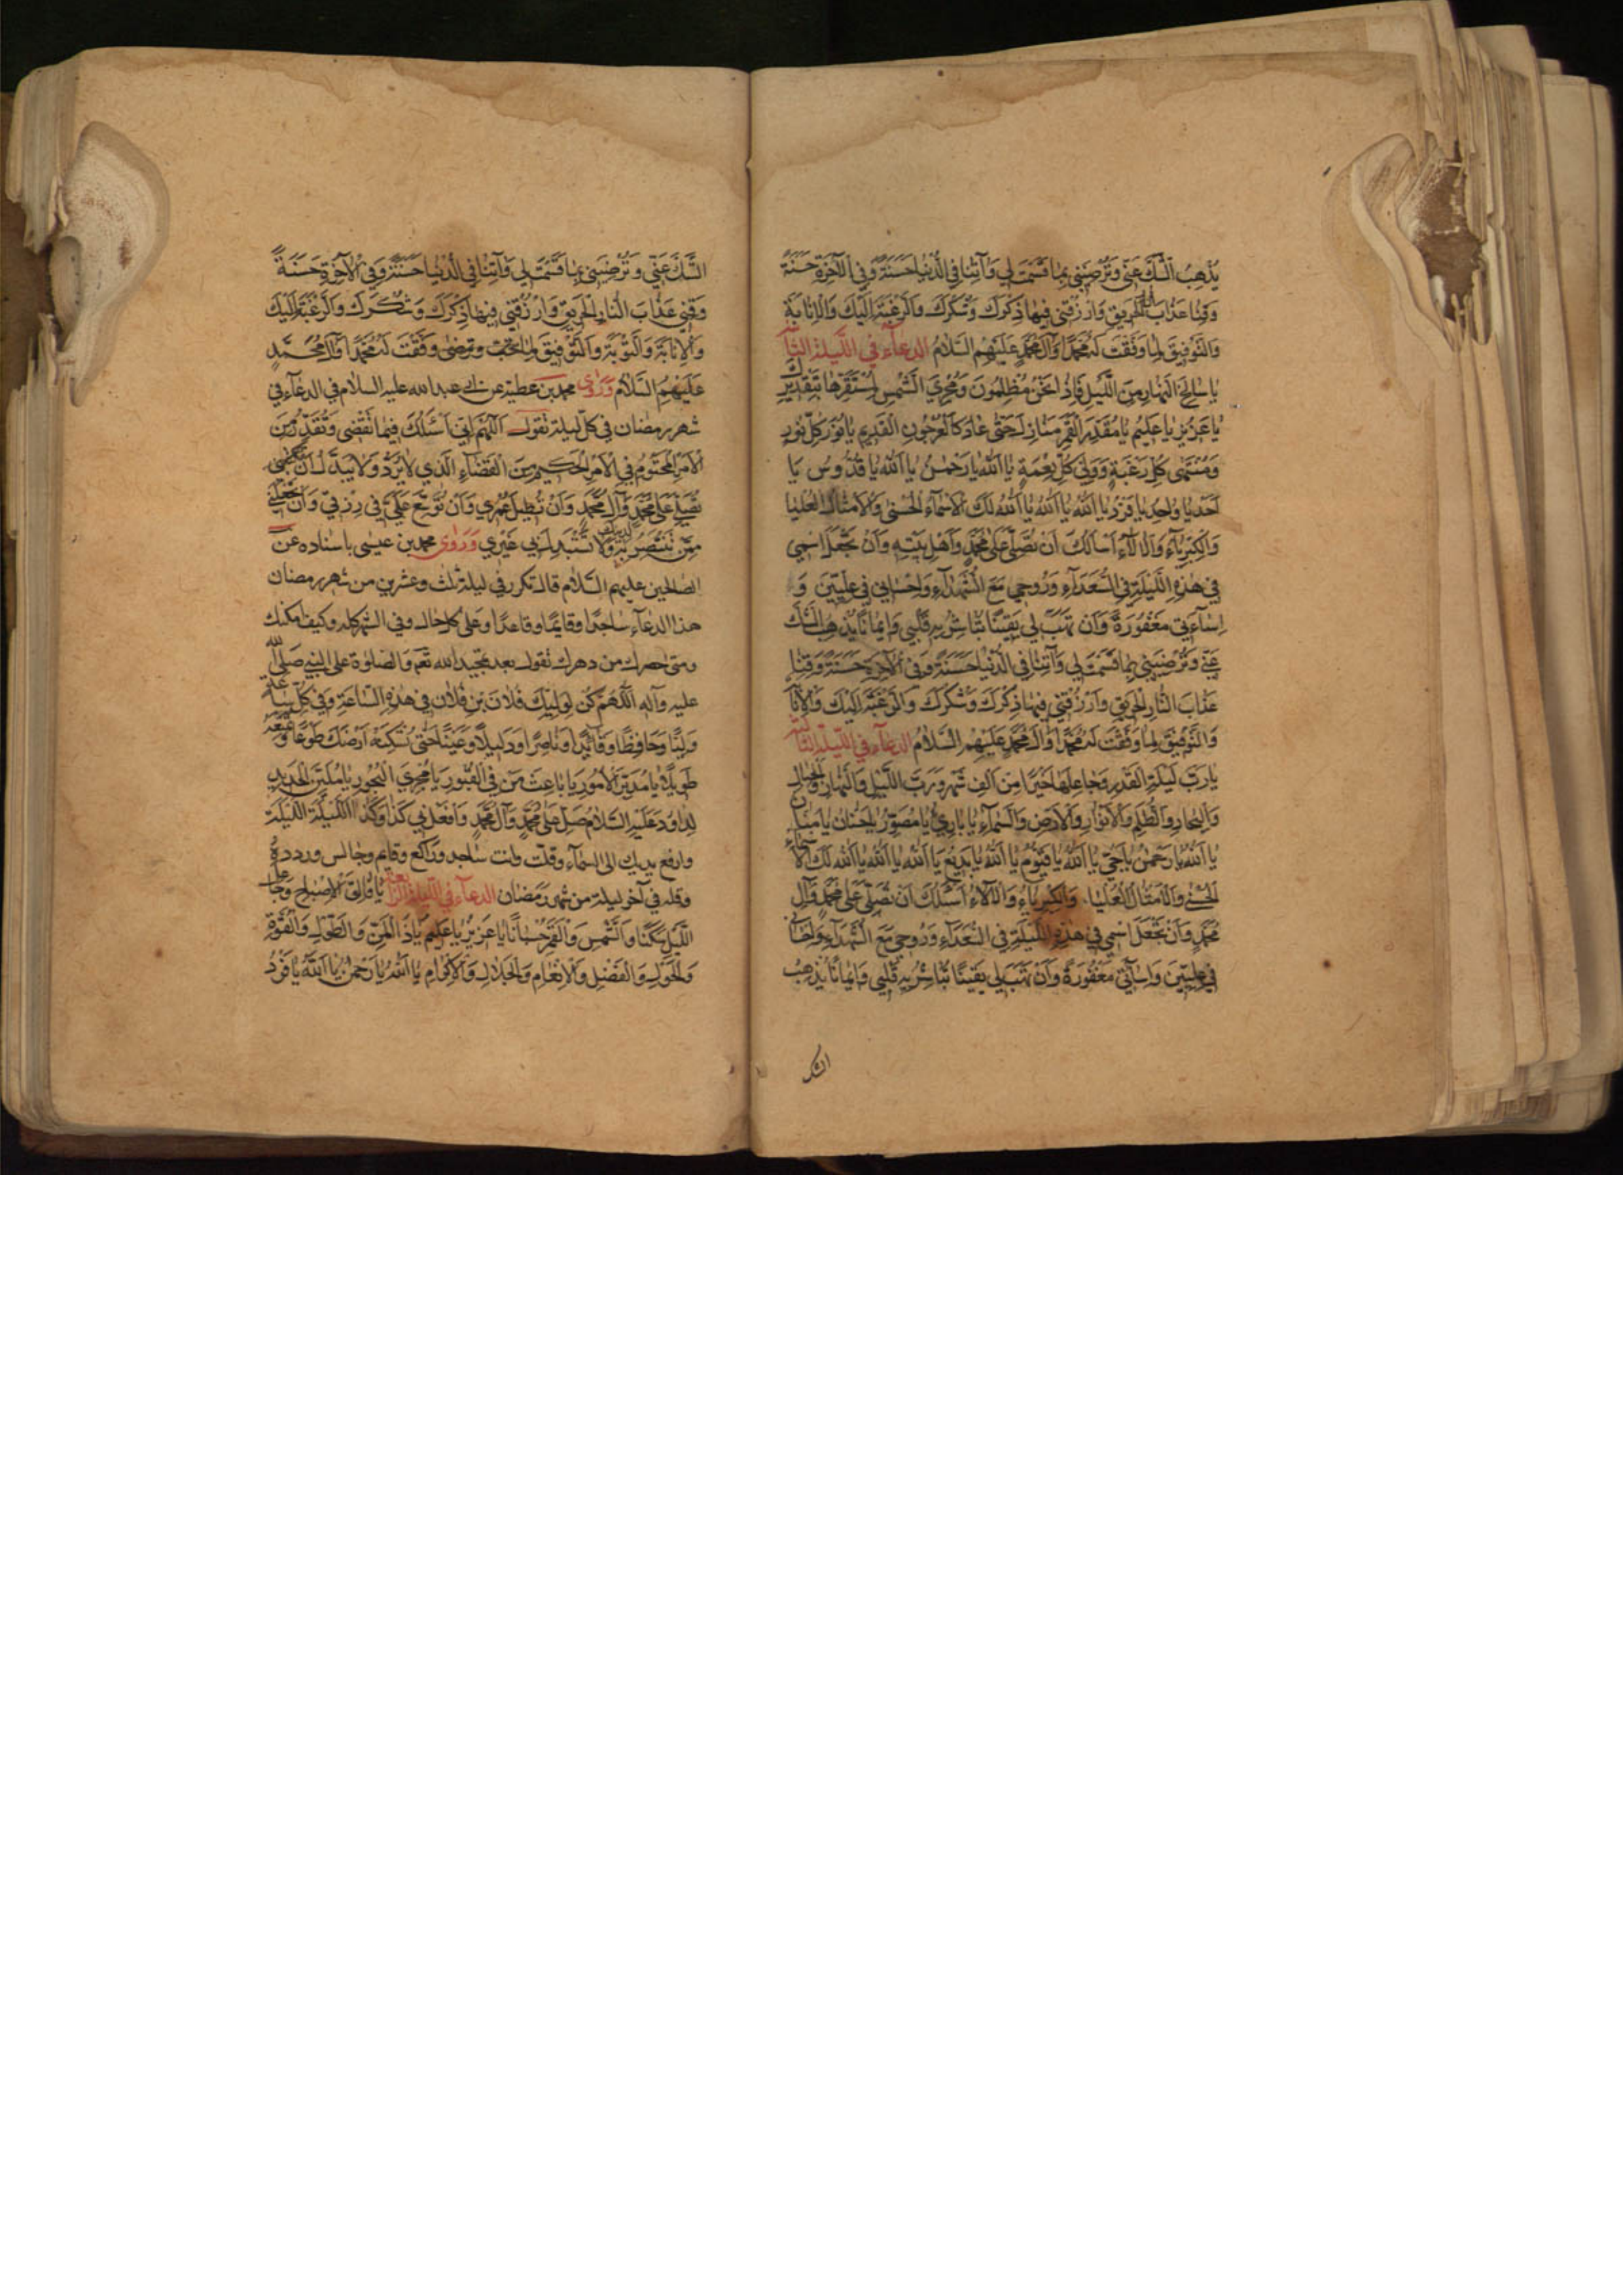 يُذْهِبُ الشَّكَّ عَنّي وَتُرْضِيَني بِمٰا قَسَمْتَ لي وَآتِنٰا فِي الدُّنْيٰا حَسَنَةً وَفِي الْآخِرَةِ حَسَنَةً
وَقِنٰا عَذٰابَ النار الْحَرِيقِ وَارْزُقْني فيهٰا ذِكْرَكَ وَشُكْرَكَ وَالرَّغْبَةَ اِلَيْكَ وَالْاِنٰابَةَ
وَالتَّوْفيقَ لِمٰا وَفَّقْتَ لَهُ مُحَمَّدًا وَآلَ مُحَمَّدٍ عَلَيْهِمُ السَّلٰامُ الدعآء في اللّيلة الثانية
يٰا سٰالِخَ النَّهٰارِ مِنَ اللَّيْلِ فَاِذٰا نَحْنُ مُظْلِمُونَ وَمُجْرِيَ الشَّمْسِ لِمُسْتَقَرِّهٰا بِتَقْديرِكَ
يٰا عَزيزُ يٰا عَليمُ يٰا مُقَدِّرَ الْقَمَرِ مَنٰازِلَ حَتّىٰ عٰادَ كَالْعُرْجُونِ الْقَديمِ يٰا نُورَ كُلِّ نُورٍ
وَمُنْتَهىٰ كُلِّ رَغْبَةٍ وَوَلِيَّ كُلِّ نِعْمَةٍ يٰا اَللّٰهُ يٰا رَحْمٰنُ يٰا اَللّٰهُ يٰا قُدُّوسُ يٰا
اَحَدُ يٰا وٰاحِدُ يٰا فَرْدُ يٰا اَللّٰهُ يٰا اَللّٰهُ يٰا اَللّٰهُ لَكَ الْاَسْمٰآءُ الْحُسْنىٰ وَالْاَمْثٰالُ الْعُلْيٰا
وَالْكِبْرِيٰآءُ وَالْآلٰآءُ اَسْاَلُكَ اَنْ تُصَلِّيَ عَلىٰ مُحَمَّدٍ وَاَهْلِ بَيْتِهِ وَاَنْ تَجْعَلَ اسْمي
في هٰذِهِ اللَّيْلَةِ فِي السُّعَدٰآءِ وَرُوحي مَعَ الشُّهَدٰآءِ وَاِحْسٰاني في عِلِّيّينَ وَ
اِسٰآءَتي مَغْفُورَةً وَاَنْ تَهَبَ لي يَقينًا تُبٰاشِرُ بِهِ قَلْبي وَايمٰانًا يُذْهِبُ الشَّكَّ
عَنّي وَتُرْضِيَني بِمٰا قَسَمْتَ لي وَآتِنٰا فِي الدُّنْيٰا حَسَنَةً وَفِي الْآخِرَةِ حَسَنَةً وَقِنٰا
عَذٰابَ النّٰارِ الْحَريقِ وَارْزُقْني فيهٰا ذِكْرَكَ وَشُكْرَكَ وَالرَّغْبَةَ اِلَيْكَ وَالْاِنٰابَةَ
وَالتَّوْفيقَ لِمٰا وَفَّقْتَ لَهُ مُحَمَّدًا وَآلَ مُحَمَّدٍ عَلَيْهِمُ السَّلٰامُ الدعآء في اللّيلة الثالثة
يٰا رَبَّ لَيْلَةِ الْقَدْرِ وَجٰاعِلَهٰا خَيْرًا مِنْ اَلْفِ شَهْرٍ وَرَبَّ اللَّيْلِ وَالنَّهٰارِ وَالْجِبٰالِ
وَالْبِحٰارِ وَالظُّلَمِ وَالْاَنْوٰارِ وَالْاَرْضِ وَالسَّمٰآءِ يٰا بٰارِئُ يٰا مُصَوِّرُ يٰا حَنّٰانُ يٰا مَنّٰانُ
يٰا اَللّٰهُ يٰا رَحْمٰنُ يٰا حَيُّ يٰا اَللّٰهُ يٰا قَيُّومُ يٰا اَللّٰهُ يٰا بَديعُ يٰا اَللّٰهُ يٰا اَللّٰهُ يٰا اَللّٰهُ لَكَ الْاَسْمٰآءُ
الْحُسْنىٰ وَالْاَمْثٰالُ الْعُلْيٰا وَالْكِبْرِيٰآءُ وَالْآلٰآءُ اَسْئَلُكَ اَنْ تُصَلِّيَ عَلىٰ مُحَمَّدٍ وَآلِ
مُحَمَّدٍ وَاَنْ تَجْعَلَ اسْمي في هٰذِهِ اللَّيْلَةِ فِي السُّعَدٰآءِ وَرُوحي مَعَ الشُّهَدٰآءِ وَاِحْسٰاني
في عِلِّيّينَ وَاِسٰآئَتي مَغْفُورَةً وَاَنْ تَهَبَ لي يَقينًا تُبٰاشِرُ بِهِ قَلْبي وَايمٰانًا يُذْهِبُ
الشك
الشَّكَّ عَنّي وَتُرْضِيَني بِمٰا قَسَمْتَ لي وَآتِنٰا فِي الدُّنْيٰا حَسَنَةً وَفِي الْآخِرَةِ حَسَنَةً
وَقِني عَذٰابَ النّٰارِ الْحَريقِ وَارْزُقْني فيهٰا ذِكْرَكَ وَشُكْرَكَ وَالرَّغْبَةَ اِلَيْكَ
وَالْاِنٰابَةَ وَالتَّوْبَةَ وَالتَّوْفيقَ لِمٰا تحبّ وترضىٰ وَفَّقْتَ لَهُ مُحَمَّدًا وَآلَ مُحَمَّدٍ
عَلَيْهِمُ السَّلٰامُ وَرَوٰى محمد بن عطية عن عبد الله عليه السلام في الدعآء في
شهر رمضان في كلّ ليلة تقول اَللّٰهُمَّ اِنّي اَسْئَلُكَ فيمٰا تَقْضي وَتُقَدِّرُ مِنَ
الْاَمْرِ الْمَحْتُومِ فِي الْاَمْرِ الْحَكيمِ مِنَ الْقَضٰآءِ الَّذي لٰا يُرَدُّ وَلٰا يُبَدَّلُ اَنْ
تُصَلِّيَ عَلىٰ مُحَمَّدٍ وَآلِ مُحَمَّدٍ وَاَنْ تُطيلَ عُمْري وَاَنْ تُوَسِّعَ عَلَيَّ في رِزْقي وَاَنْ تَجْعَلَني
مِمَّنْ تَنْتَصِرُ بِهِ لدينك وَلٰا تَسْتَبْدِلْ بي غَيْري وَرَوٰى محمد بن عيسى باسناده عن
الصالحين عليهم السَّلٰام قال تكرر في ليلة ثلث وعشرين من شهر رمضان
هذا الدعآء ساجدًا وقايمًا وقاعدًا وعلى كل حال وفي الشهر كله وكيف امكنك
ومتى حضرك من دهرك تقول بعد تمجيد الله تعٰ والصلوٰة على النبي صَلَّى اللّٰهُ
عليه وآله اَللّٰهُمَّ كُنْ لِوَلِيِّكَ فُلٰانِ بْنِ فُلٰانٍ في هٰذِهِ السّٰاعَةِ وَفي كُلِّ سٰاعَةٍ
وَلِيًّا وَحٰافِظًا وَقٰائِدًا وَنٰاصِرًا وَدَليلًا وَعَيْنًا حَتّىٰ تُسْكِنَهُ اَرْضَكَ طَوْعًا وَتُمَتِّعَهُ
طَويلًا يٰا مُدَبِّرَ الْاُمُورِ يٰا بٰاعِثَ مَنْ فِي الْقُبُورِ يٰا مُجْرِيَ الْبُحُورِ يٰا مُلَيِّنَ الْحَديدِ
لِدٰاوُدَ عَلَيْهِ السَّلٰامُ صَلِّ عَلىٰ مُحَمَّدٍ وَآلِ مُحَمَّدٍ وَافْعَلْ بي كَذٰا وَكَذٰا اَللَّيْلَةَ اللَّيْلَةَ
وارفع يديك الى السَّمآء وقلت وانت ساجد وراكع وقايم وجالس وردده
وقله في آخر ليلة من شهر رَمَضٰان الدعآء في اللّيلة الرابعة يٰا فٰالِقَ الْاِصْبٰاحِ وَجٰاعِلَ
اللَّيْلِ سَكَنًا وَالشَّمْسِ وَالْقَمَرِ حُسْبٰانًا يٰا عَزيزُ يٰا عَليمُ يٰا ذَا الْمَنِّ وَالطَّوْلِ وَالْقُوَّةِ
وَالْحَوْلِ وَالْفَضْلِ وَالْاِنْعٰامِ وَالْجَلٰالِ وَالْاِكْرٰامِ يٰا اَللّٰهُ يٰا رَحْمٰنُ يٰا اَللّٰهُ يٰا فَرْدُ